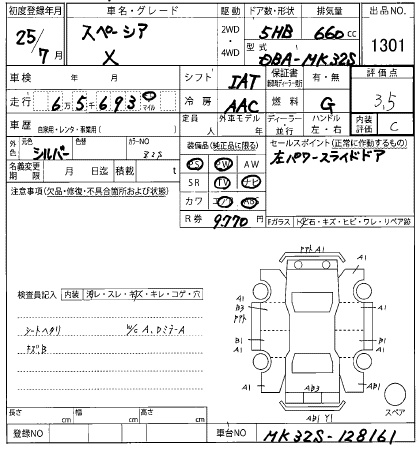 初度登録年月 車名・グレード 駆動 ドア数・形状 排気量 出品NO
25/7月 スペーシア X 2WD 4WD 5HB 660cc 1301
型式 DBA-MK32S
車検 年 月 シフト IAT 保証書 有・無 評価点
走行 6万5千693 km マイル 冷房 AAC 燃料 G 3.5
車歴 自家用・レンタ・事業用( ) 定員 人 外車モデル 年 ディーラー 並行 ハンドル 左・右 内装評価 C
外色 元色 シルバー 色替 カラーNO 装備品(純正品に限る) セールスポイント(正常に作動するもの)
名義変更期限 月 日迄 積載 t PS PW AW 左パワースライドドア
注意事項(欠品・修復・不具合箇所および状態) SR TV ナビ
カワ エアB ABS
R券 9770円 Fガラス
検査員記入 内装 汚レ・スレ・キズ・キレ・コゲ・穴
シートヘタリ
キズB
アト A1
A1 A1
A1 A1
B3
B1 A1
A1 AB1
AB3
AB1 Y1
スペア
長さ cm 幅 cm 高さ cm
登録NO 車台NO MK32S-128161